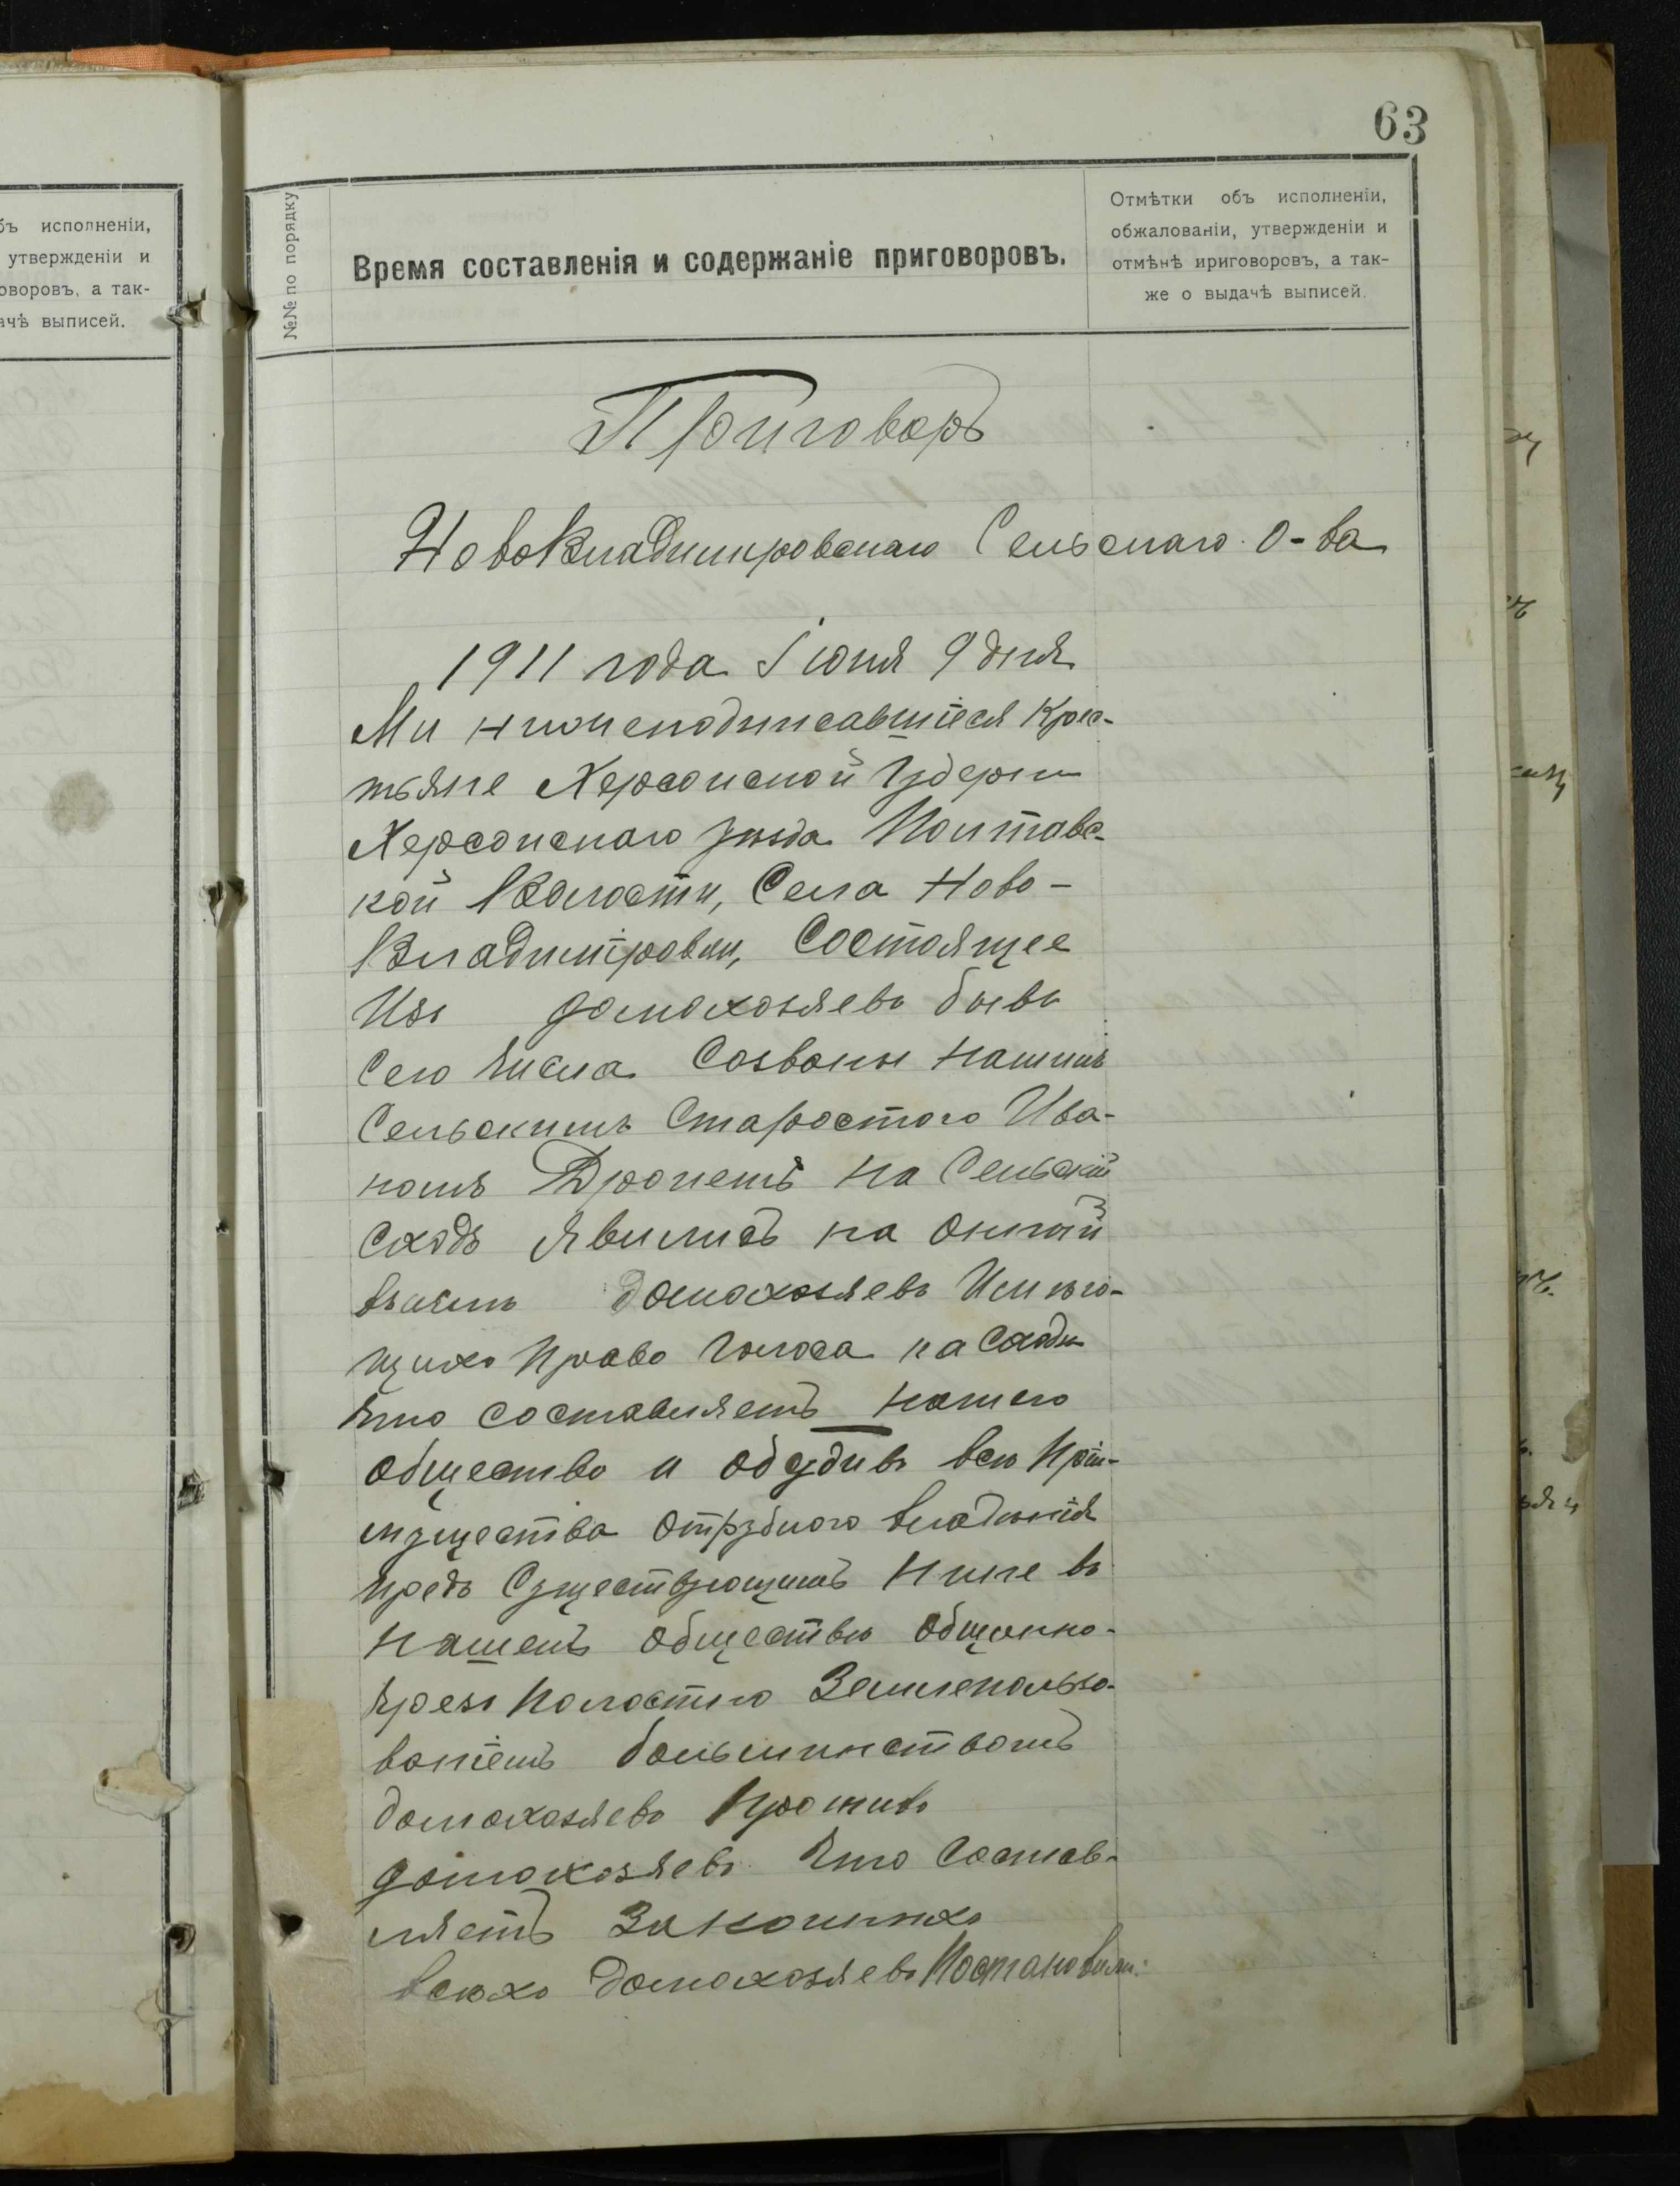 63
бъ исполненіи,
утвержденіи и
оворовъ, а так-
ачѣ выписей.
№№ по порядку
Время составленія и содержаніе приговоровъ.
Отмѣтки объ исполненіи,
обжалованіи, утвержденіи и
отмѣнѣ ириговоровъ, а так-
же о выдачѣ выписей.
Приговоръ
НовоВладимировскаго Сельскаго О-ва
1911 года Іюня 9 дня
Ми нижеподписавшіеся Крес-
тьяне Херсонской Губерни
Херсонскаго уѣзда Полтавс-
кой Волости, Села Ново-
Владиміровки, Состоящее
Изъ домохозяевъ бывъ
Сего Числа Созваны Нашимъ
Сельскимъ Старостою Ива-
номъ Дронемъ На Сельскій
Сходъ Явились на Оный
домохозяевъ Имѣю-
щихъ Право Голоса на Сходѣ
Что составляетъ Нашего
Общество и Обсудивъ всѣ Прѣи-
мущества Отрубного владѣнія
предъ Существующимъ Нине въ
Нашемъ Обществѣ Общинно-
Чрезъ Полостно Землепользо-
ваніемъ большинствомъ
домохозяевъ Противъ
домохозяевъ Что Состав-
ляетъ Законныхъ
всѣхъ домохозяевъ Постановили: